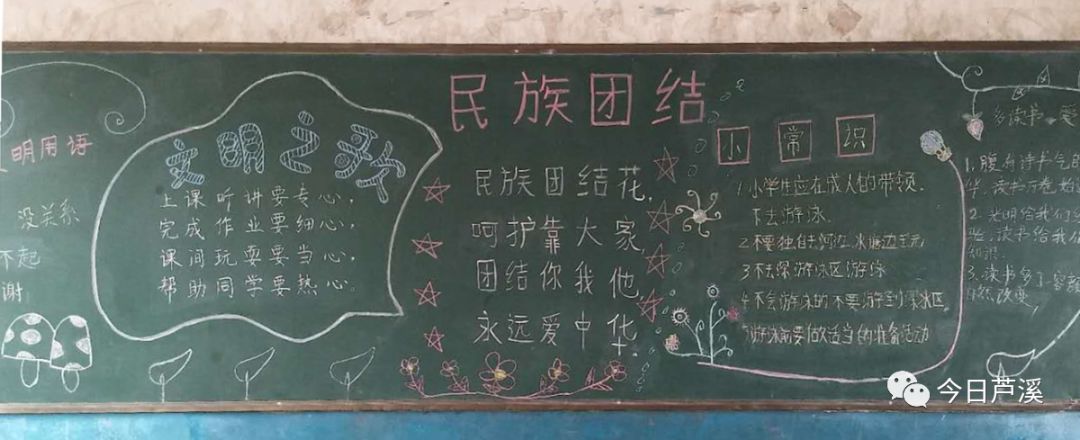 明用语
没关系
不起
谢
文明之歌
上课听讲要专心,
完成作业要细心,
课间玩耍要当心,
帮助同学要热心。
民族团结
民族团结花,
呵护靠大家,
团结你我他,
永远爱中华.
小常识
1.小学生应在成人的带领.
下去游泳.
2.不要独自去河边.水塘边玩.
3.不去深游泳区游泳
4.不会游泳的不要游到深水区.
5.游泳前要做适当的准备活动
多读书 爱
1.腹有诗书气自
华,读书万卷始
2.光明给我们经
验,读书给我们
知识.
3.读书多了容颜
自然改变,
今日芦溪